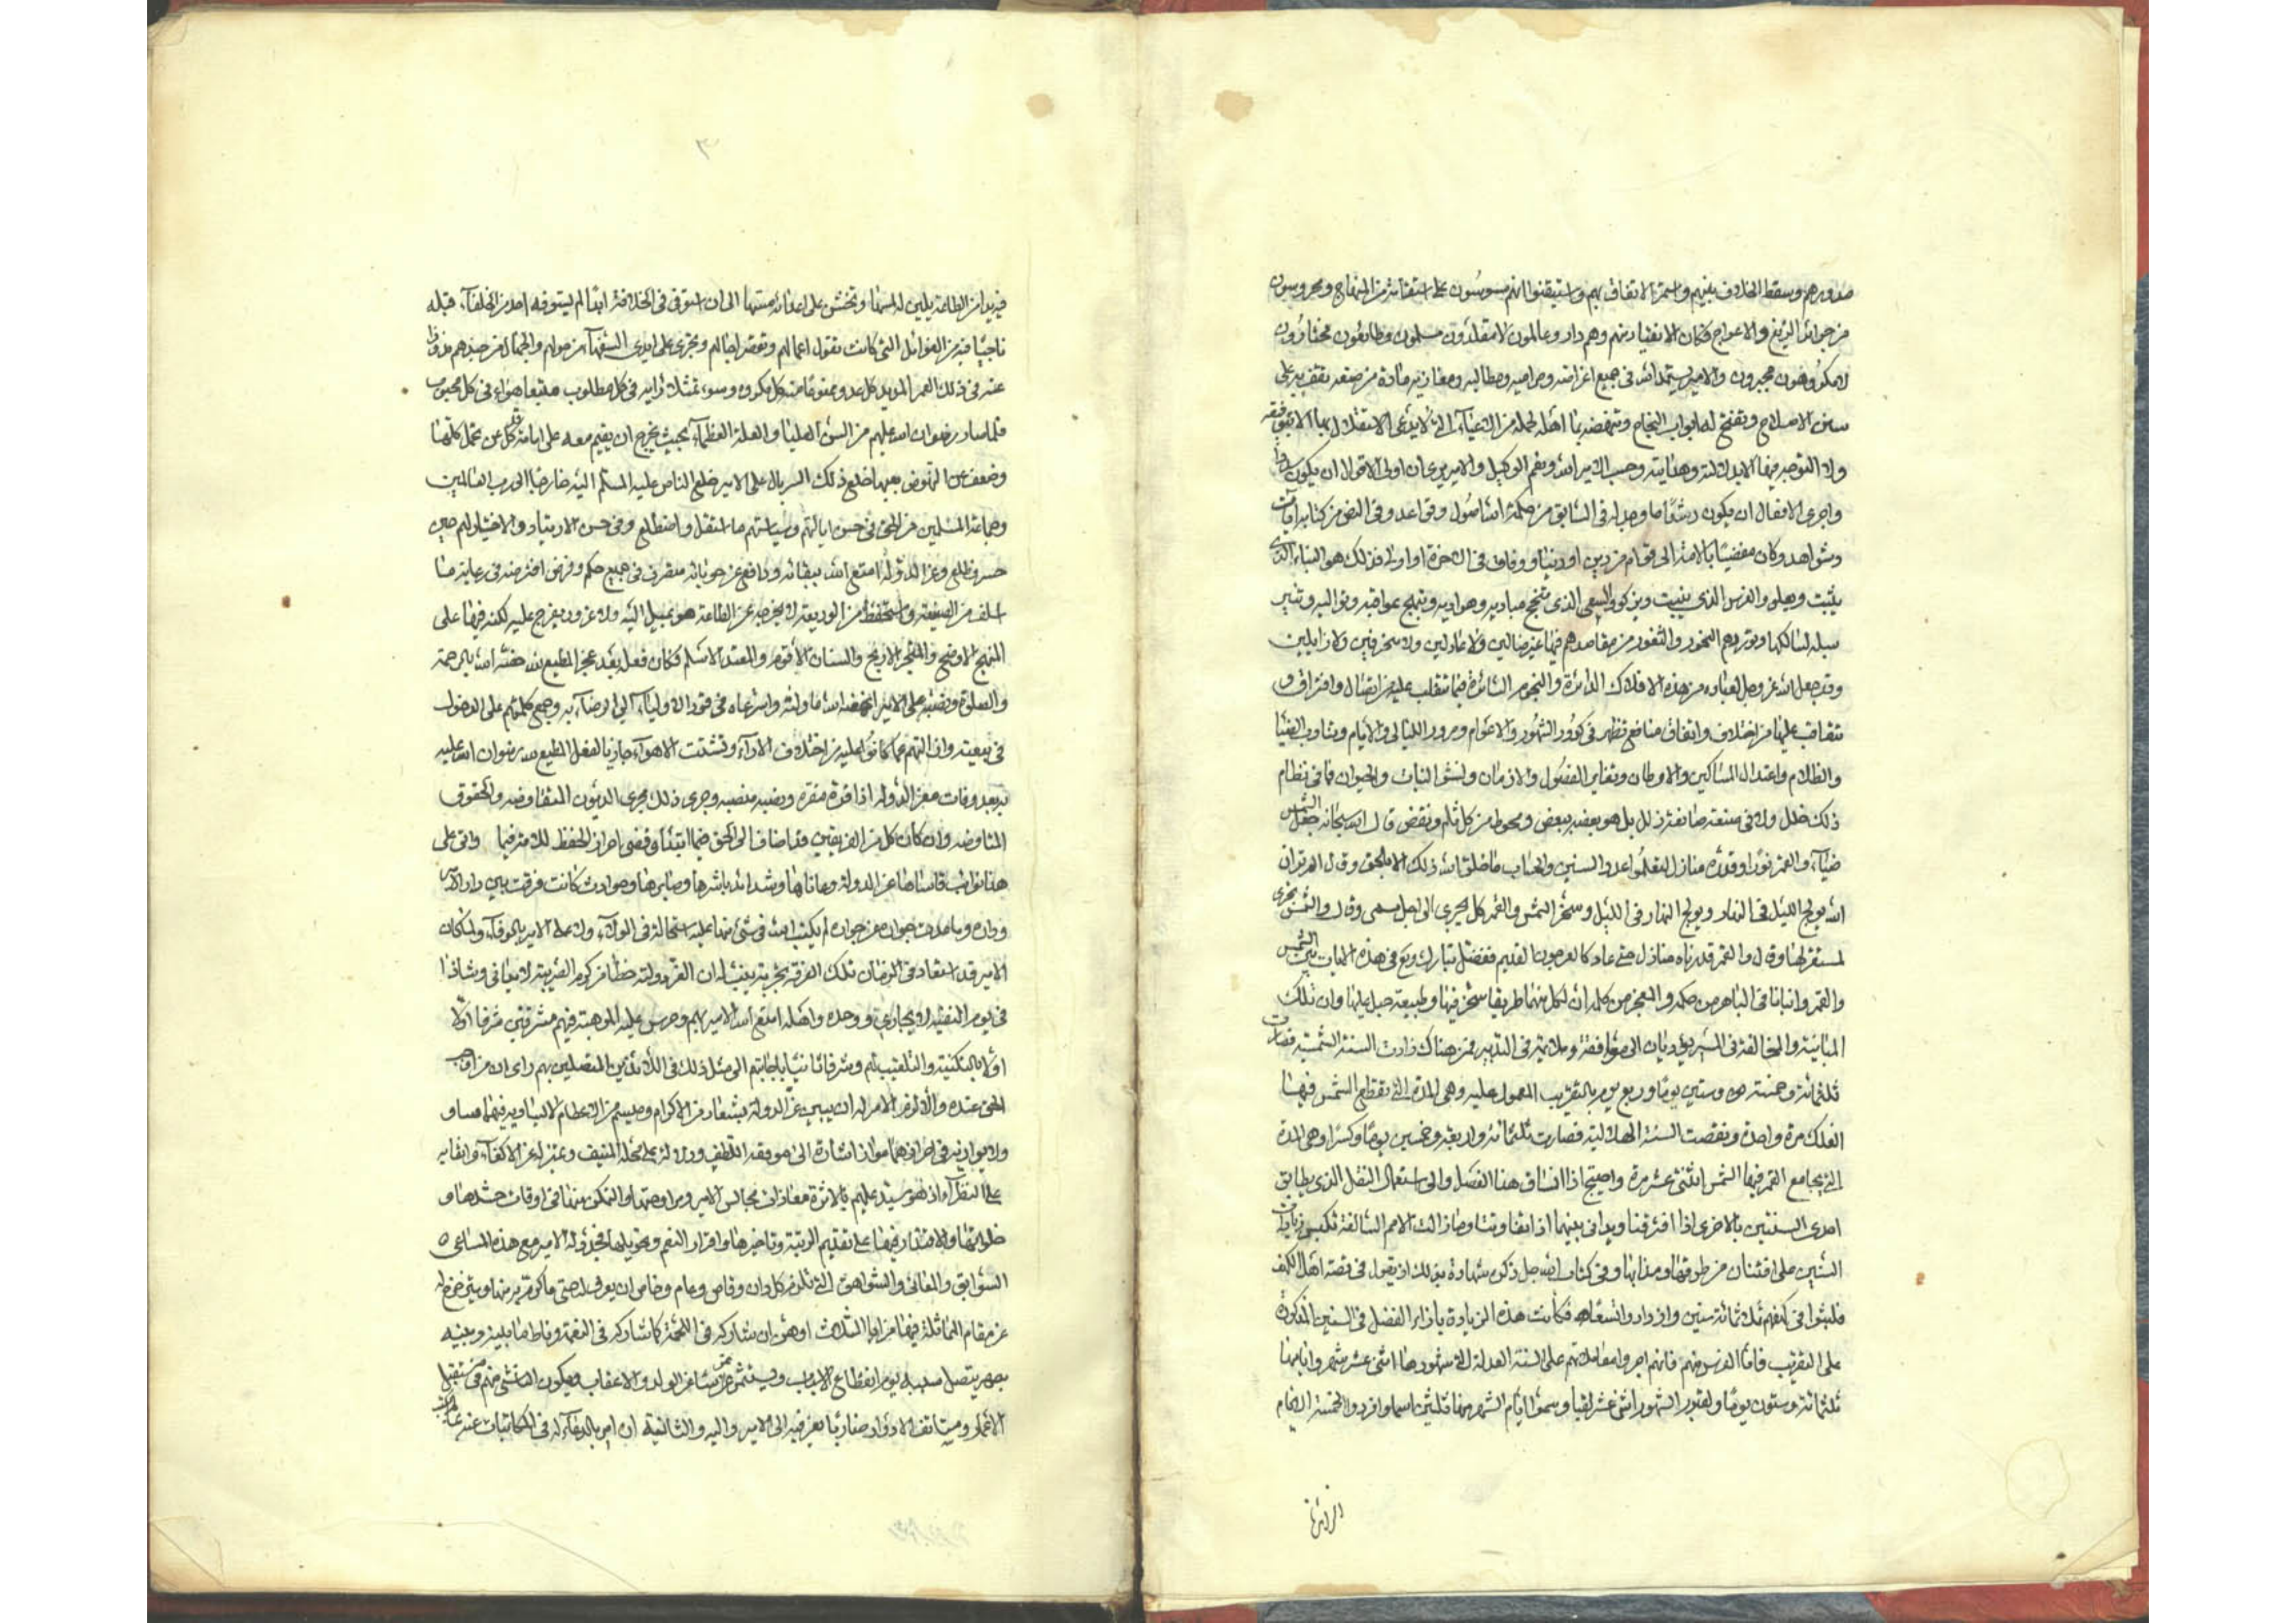 صدورهم وسقط الخلاف بينهم واستمر الاتفاق بهم واستيقنوا انهم مسوسون على استقامة من المنهاج ومحروسون
من جرائر الزيغ والاعوجاج فكان الانقياد منهم وهم دارون عالمون لا مقلدون مسلمون وطائعون مختارون
لا مكرهون مجبرون والامير يستمد الله في جميع اغراضه ومراميه ومطالبه ومغازيه مادة من صنعه تقف به على
سنن الاصلاح وتفتح له ابواب النجاح وتنهضه بما اهله لحمله من الاعباء التي لا يدعي الاستقلال بها الا بتوفيقه
ولا التوجه فيها الا بدلالته وهدايته وحسب الامير الله ونعم الوكيل والامير يرى ان اولى الاقوال ان يكون سدادا
واحرى الافعال ان يكون رشدا ما وجد له في السابق من حكمة الله اصول وقواعد وفي النص من كتابه آيات
وشواهد وكان مفضيا بالامة الى قوام من دين او دنيا ووفاق في آخرة او اولى فذلك هو البناء الذي
يثبت ويعلو والغرس الذي ينبت ويزكو والسعي الذي تنجح مباديه وهواديه وتبهج عواقبه وتواليه وتنير
سبله لسالكها وتوردهم النحور والثغور من مقاصدهم فيها غير ضالين ولا عادلين ولا منحرفين ولا زايلين
وقد جعل الله عز وجل لعباده من هذه الافلاك الدائرة والنجوم السائرة فيما تتقلب عليه من اتصال وافتراق و
تتعاقب عليها من اختلاف واتفاق منافع تظهر في كرور الشهور والاعوام ومرور الليالي والايام وتناوب الضياء
والظلام واعتدال المساكن والاوطان وتغاير الفصول والازمان ونشو النبات والحيوان فما في نظام
ذلك خلل ولا في صنعة صانعه زلل بل هو بعضه ببعض ومحوط من كل ثلم ونقض قال الله سبحانه جعل الشمس
ضياء والقمر نورا وقدره منازل لتعلموا عدد السنين والحساب ما خلق الله ذلك الا بالحق وقال الم تر ان
الله يولج الليل في النهار ويولج النهار في الليل وسخر الشمس والقمر كل يجري الى اجل مسمى وقال والشمس تجري
لمستقر لها وقال والقمر قدرناه منازل حتى عاد كالعرجون القديم ففضل تبارك وتع في هذه الايات بين الشمس
والقمر وانبانا في الباهر من حكمه والمعجز من كلمه ان لكل منهما طريقا سخر فيها وطبيعة جبل عليها وان تلك
المباينة والمخالفة في المسير يؤديان الى موافقة وملائمة في التدبير فمن هناك زادت السنة الشمسية فصارت
ثلثمائة وخمسة وستين يوما وربع يوم بالتقريب المعمول عليه وهي المدة التي تقطع الشمس فيها
الفلك مرة واحدة ونقصت السنة الهلالية فصارت ثلثمائة واربعة وخمسين يوما وكسرا وهي المدة
التي يجامع القمر فيها الشمس اثنتي عشر مرة واحتيج اذا انساق هذا الفصل والى استعمال النقل الذي يطابق
احدى السنتين بالاخرى اذا افترقتا ويداني بينهما اذا تفاوتتا وما زالت الامم السالفة تكبس زيادات
السنين على افتنان من طرقها ومذاهبها وفي كتاب الله جل ذكره شهادة بذلك اذ يقول في قصة اهل الكهف
فلبثوا في كهفهم ثلثمائة سنين وازدادوا تسعا فكانت هذه الزيادة بازاء الفضل في السنين المذكورة
على التقريب فاما الفرس منهم فانهم اجروا معاملاتهم على السنة المعدلة التي شهورها اثنى عشر شهرا وايامها
ثلثمائة وستون يوما ولقبوا الشهور اثنى عشر لقبا وسموا ايام الشهر منها ثلثين اسما وافردوا الخمسة الايام
الزائدة
فيه يدا من الطاعة يلين له لمسها وتخشن على اعدائه مستها الى ان استوفى في الخلافة ايما لم يستوفه احد من الخلفاء قبله
ناجيا فيه من الغوائل التي كانت تقول اعمالهم وتقصر اجالهم وتجري على ايدي السفهاء من حولهم والجهال من جندهم مذودا
عنه في ذلك العمر المديد كل عدو ممنوعا منه كل مكروه وسوء متمثلا رايه في كل مطلوب متبعا هواه في كل محبوب
فلما صار رضوان الله عليهم من السن العليا والعلة العظماء بحيث يحرج ان يقيم معه على امامة قد كل عن تحمل كلها
وضعف عن النهوض بعبها خلع ذلك السربال على الامير خلع الناص عليه المسلم اليه خارجا الى رب العالمين
وجماعة المسلمين من الحق في حسن ايالتهم وسياستهم ما استقل واضطلع وفي حسن الارتياد والاختيار لهم حين
حسر وظلع وعز الدولة امتع الله ببقائه ودافع عن حوبائه متصرف في جميع حكم وفرض افترضه في رعاية ما
اسلف من الصنيعة واستحفظ من الوديعة لا يخرجه عن الطاعة هو يميل اليه ولا غرور يعرج عليه لكنه فيها على
المنهج الاوضح والمتجر الاربح والسنان الاقوم والمعتد الاسلم فكان فعله بعد عجز المطيع لله حفته الله بالرحمة
والصلوة ونصبه على الامير انهضه الله ما ولاه واسترعاه في قود الاولياء الى الرضاء به وجمع كلمتهم على الدخول
في بيعته والتهم عما كانوا عليه من اختلاف الاراء وتشتت الاهواء جازيا لفعل المطيع لله رضوان الله عليه
به بعد وفات معز الدولة اذا قره مقره ونصبه منصبه وجرى ذلك مجرى الديون المتقاوضه والحقوق
المتاوضه وان كان كل من الفريقين قد اضاف الى الحق فيما ابتدا وقضى احراز الحفظ للامة فيما واتى على
هذا نوائب قاساها عز الدولة وعاناها وشدائد باشرها وصابرها وحوادث كانت فرقت بين دار الامير
وداره وباعدت جواره من جواره لم يكتب الله في شئ منها عليه استحالة في الولاء ولا على الامير بالوفاء ولئن كان
الامير قد استفاد في الزمان تلك الفرقة تجربة يغشاه ان القرد ولته حظا من كرم الضريبة لا يعاني وشاذا
في يوم النقيبة لا يجارى ووحده واهله امتع الله الامير بهم وحرس عليه الموهبة فيهم مشرفين شرفا اولا
اولا بالتكنية والتلقيب لهم وشرفا ثانيا باجابتهم الى مثل ذلك في اللائذين المتصلين بهم راى ان من اوجب
الحق عنده والازم الامر له ان يبين عز الدولة بشعار من الاكرام وميسم من الاعظام لا يساويه فيهما مساو
ولا يوازنه في احرازهما مواز اشارة الى موقعه اللطيف ودلالة على محله المنيف وتمييزا له عن الاكفاء وايفاء به
على النظراء اذ هو سيد عليهم بالاثرة معاذات مجالس الامير ومراوحتها والتمكن منها في اوقات حشدها و
خلواتها والاقتدار فيها على تقديم الرتبة وتاخيرها واقرار النعم وتحويلها فجدد له الامير مع هذه المساعي ه
السوابق والمعاني والشواهق التي تلزم كل دان وقاص وعام وخاص ان يعرف له حق ما كرم به منها ويتزحزح له
عن مقام المماثلة فيها مزايا الثلاث اوهن ان شاركه في اللحمة كما شاركه في النعمة وناط ما بينه وبينه
بصهر يتصل سببه يوم انقطاع الاسباب ويستمر من مشاعر الولد والاعقاب ويكون الناشى منهم في مستقبل
الاعمار ومستانف الادوار ضاربا بعرقيه الى الامير واليه والثانية ان امر بالدعاء له في المكاتبات عنه على المنابر